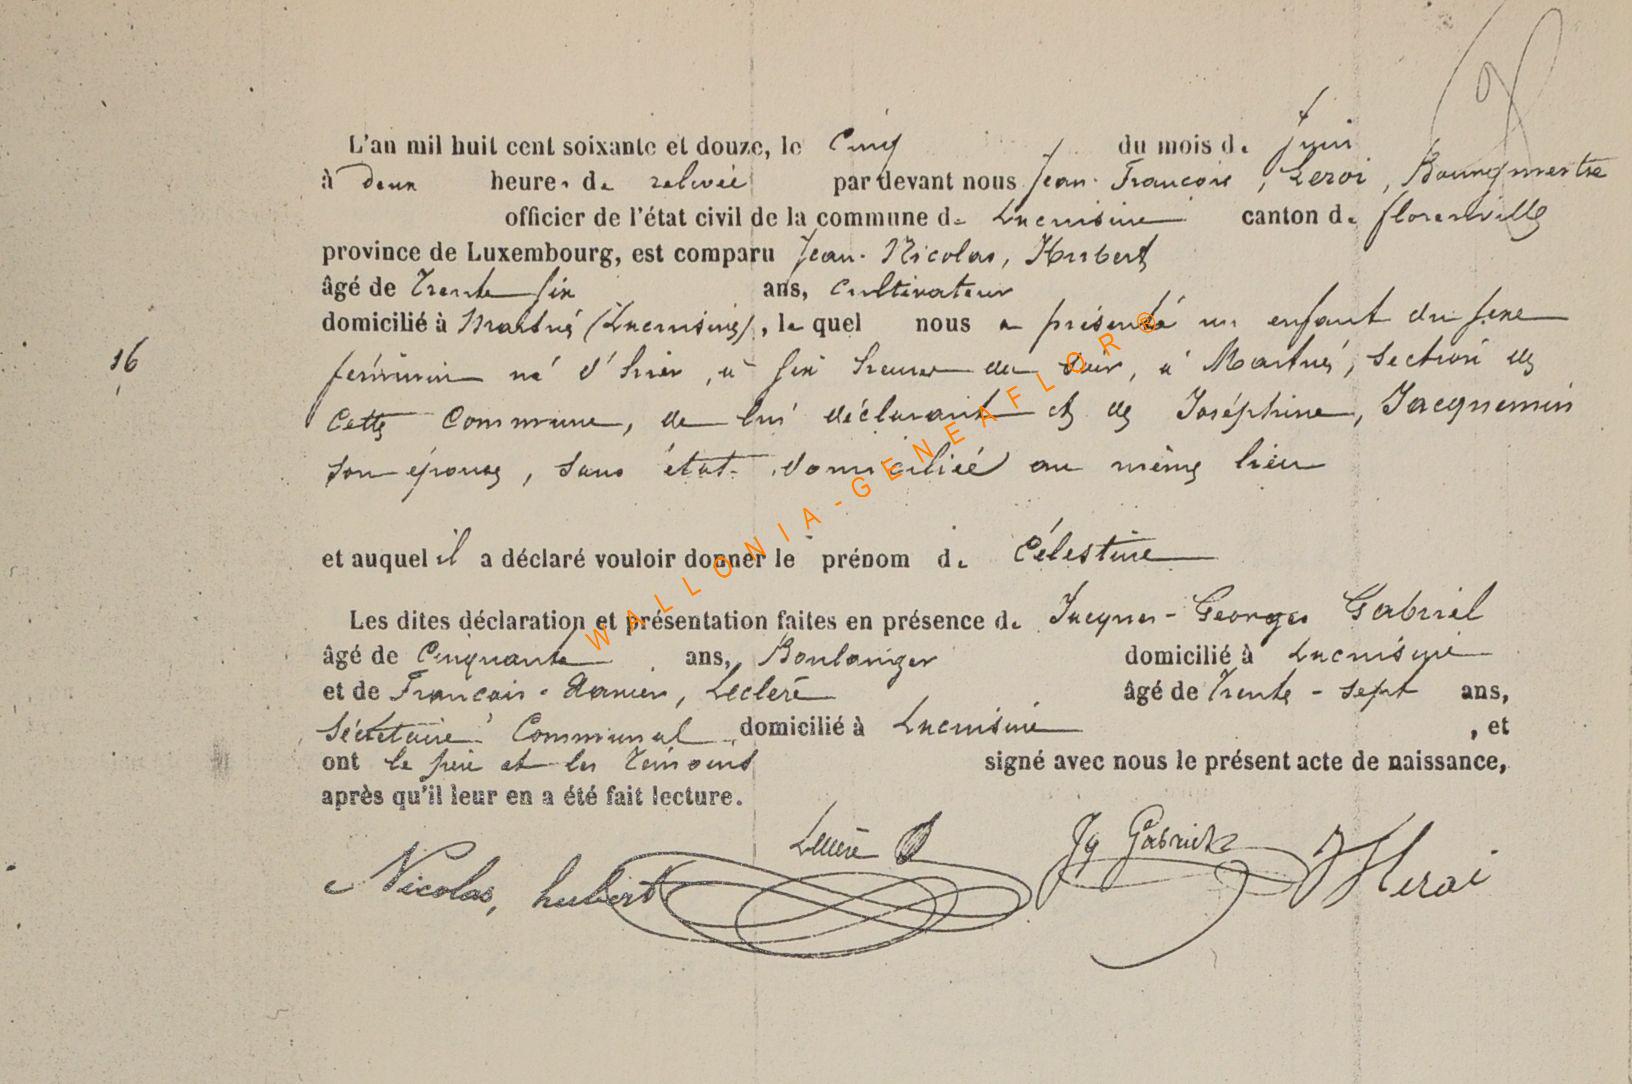 L'an mil huit cent soixante et douze, le Cinq du mois de Juin
à deux heures de relevée par devant nous Jean-François, Leroi, Bourgmestre
officier de l'état civil de la commune de Lacuisine canton de florenville
province de Luxembourg, est comparu Jean-Nicolas, Hubert
âgé de Trente six ans, Cultivateur
domicilié à Martué (Lacuisine), le quel nous a présenté un enfant du sexe
16
féminin né d'hier, à six heures du soir, à Martué, section de
Cette Commune, de lui déclarant et de Joséphine, Jacquemin
son épouse, sans état domiciliée au même lieu
et auquel il a déclaré vouloir donner le prénom de Célestine
Les dites déclaration et présentation faites en présence de Jacques-Georges Gabriel
âgé de Cinquante ans, Boulanger domicilié à Lacuisine
et de François-Xavier, Leclerè âgé de Trente-sept ans,
Sécrétaire Communal domicilié à Lacuisine, et
ont le père et les témoins signé avec nous le présent acte de naissance,
après qu'il leur en a été fait lecture.
Leclerè Jq Gabriel
Nicolas, hubert JfLeroi
WALLONIA-GENEAFLOR®